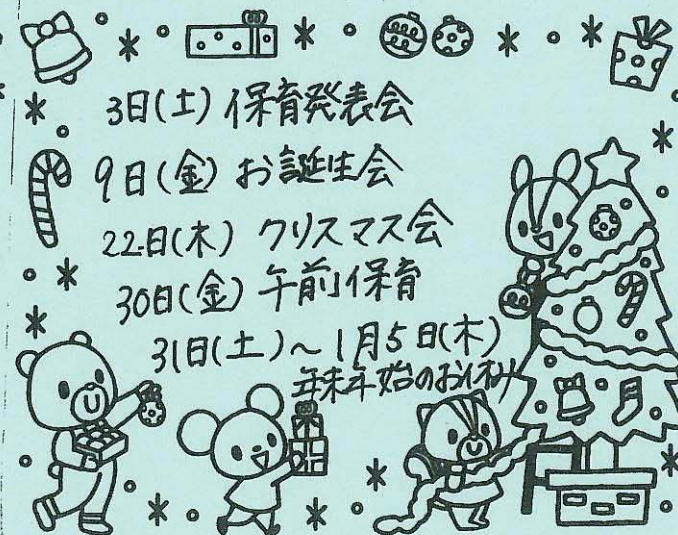 3日(土) 保育発表会
9日(金) お誕生会
22日(木) クリスマス会
30日(金) 午前保育
31日(土)～1月5日(木)
年末年始のお休み